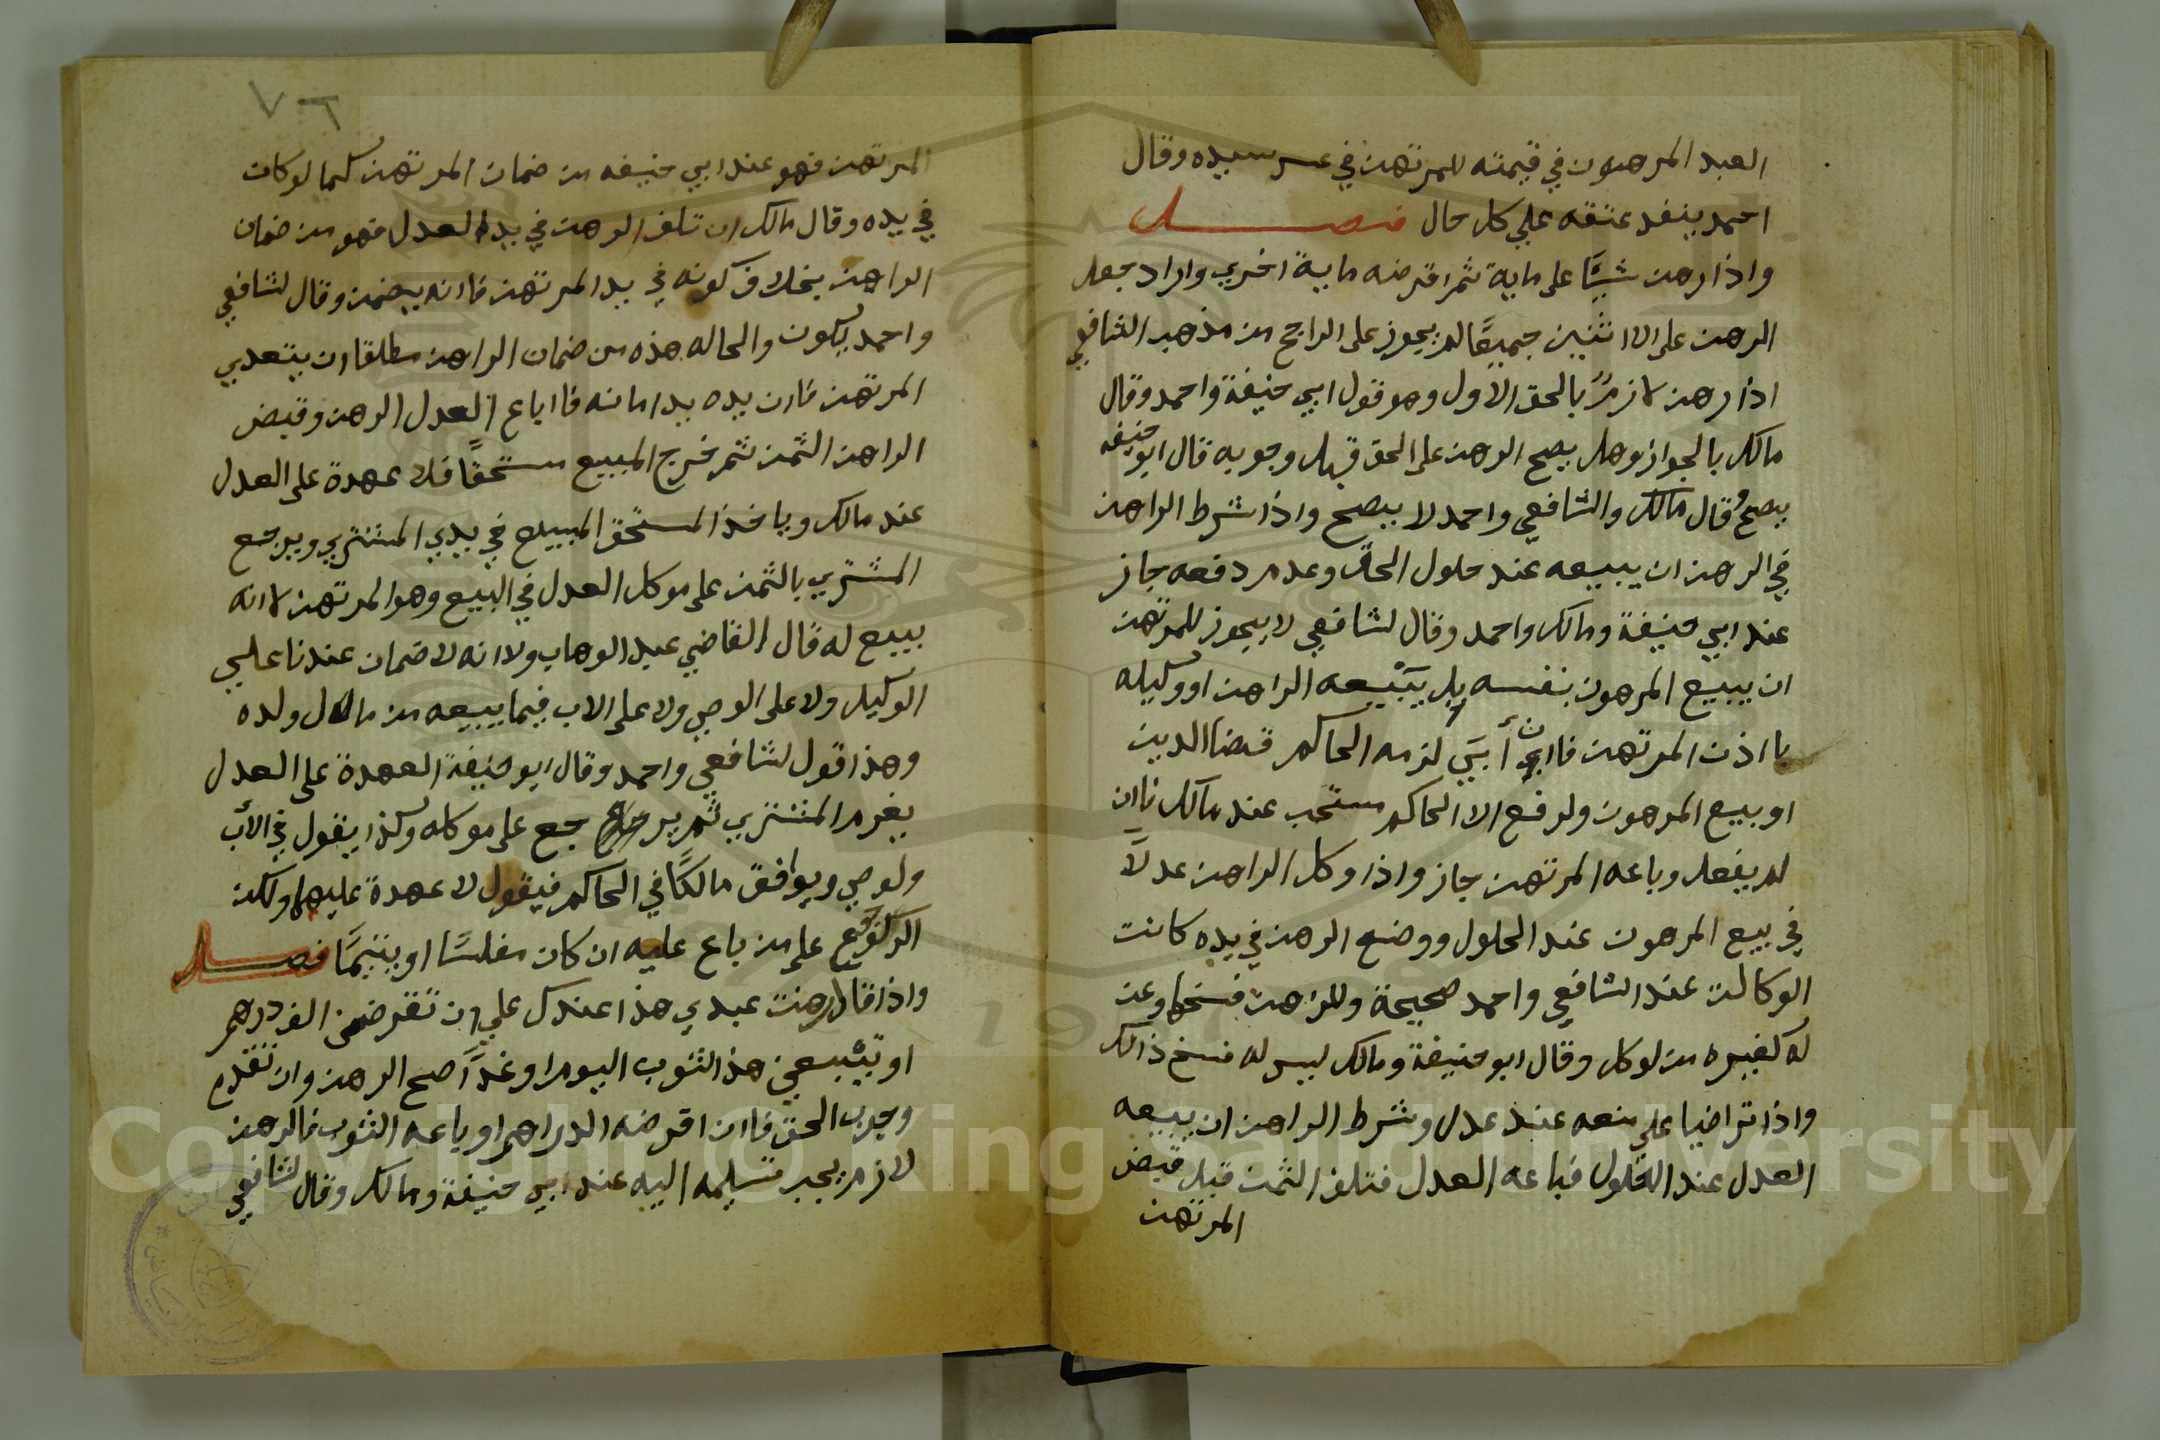 العبد المرهون في قيمته للمرتهن في عسر سيده وقال
احمد ينفد عتقه علي كل حال فصل
واذا رهن شيئا على ماية ثم اقرضه ماية اخري واراد جعل
الرهن على الاثنين جميعًا لم يجوز على الراجح من مذهب الشافعي
اذ الرهن لازمٌ بالحق الاول وهو قول ابي حنيفة واحمد وقال
مالك بالجواز وهل يصح الرهن على الحق قبل وجوبه قال ابو حنيفه
يصح وقال مالك والشافعي واحمد لا يصح واذا شرط الراهن
في الرهن ان يبيعه عند حلول الحق وعدم دفعه جاز
عند ابي حنيفة ومالك واحمد وقال لشافعي لا يجوز للمرتهن
ان يبيع المرهون بنفسه بل يَبْيعه الراهن او وكيله
با اذن المرتهن فاان أبَي لزمه الحاكم قضا الدين
او بيع المرهون ولرفع الا الحاكم مستحب عند مالك فاان
لم يفعل وباعه المرتهن جاز واذا وكل الراهن عدلاً
في بيع المرهون عند الحلول ووضع الرهن في يده كانت
الوكالت عند الشافعي واحمد صحيحة وللراهن فسخها وعن
له كغيره من لوكل وقال ابو حنيفة ومالك ليس له فسخ ذالك
واذا تراضيا علي منعه عند عدل وشرط الراهن ان يبيعه
العدل عند الحلول فباعه العدل فتلف الثمن قبل قبض
المرتهن
٧٦
المرتهن فهو عند ابي حنيفه من ضمان المرتهن كما لو كات
في يده وقال مالك ان تلف الرهن في يد العدل فهو من ضمان
الراهن بخلاف كونه في يد المرتهن فاانه يضمن وقال لشافعي
واحمد يكون والحاله هذه من ضمان الراهن مطلقا ان يتعدي
المرتهن فاان يده يد امانه فااباع العدل الرهن وقبض
الراهن الثمن ثم خرج المبيع مستحقًا فلا عهدة على العدل
عند مالك وياخذ المستحق المبيع في يدي المشتري ويرجع
المشتري بالثمن على موكل العدل في البيع وهو المرتهن لاانه
بييع له قال القاضي عبد الوهاب ولاانه لا ضمان عندنا علي
الوكيل ولا على الوصي ولا على الاب فيما يبيعه من مال ولده
وهذا قول لشافعي واحمد وقال ابو حنيفة العهدة على العدل
يغرم المشتري ثم ير جع على موكله وكذا يقول في الأب
ولوصي ويوافق مالكًا في الحاكم فيقول لا عهدة عليهما ولكن
الرجوع على من باع عليه ان كان مفلسًا او يتيمًا فصل
واذا قال رهنت عبدي هذا عندك علي ان تقرضنى الف درهم
او تبْيعني هذ الثوب اليوم او غدًا صح الرهن وان تقدم
وجوب الحق فاان اقرضه الدراهم او باعه الثوب فالرهن
لازم يجب تسليمه اليه عند ابي حنيفة ومالك وقال لشافعي
Copyright © King Saud University